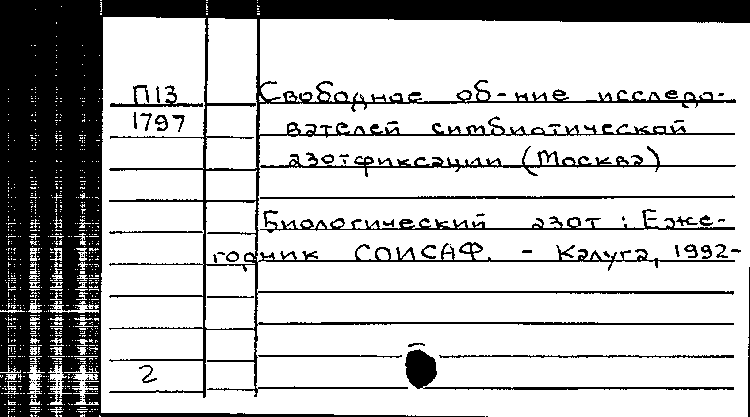 П13 Свободное об-ние исследо-
1797 вателей симбиотической
азотфиксации (Москва)
Биологический азот : Еже-
годник СОИСАФ. - Калуга, 1992-
2